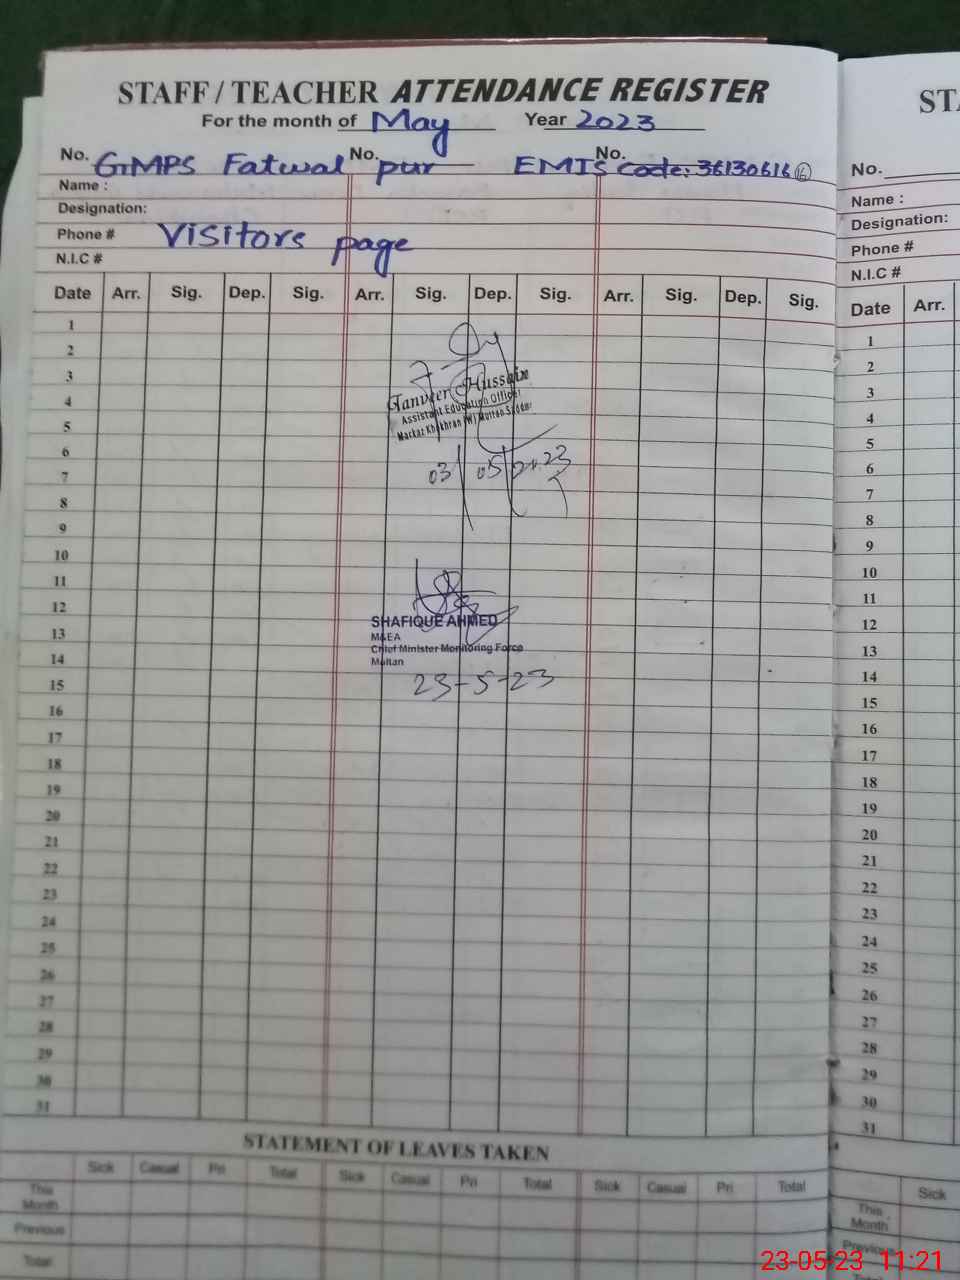 STAFF / TEACHER ATTENDANCE REGISTER
For the month of May Year 2023
No. GMPS Fatwal No. pur No. EMIS Code: 36130616 16
Name :
Designation:
Phone # Visitors page
N.I.C #
Date Arr. Sig. Dep. Sig. Arr. Sig. Dep. Sig. Arr. Sig. Dep. Sig.
1
2
3
4
5
6
7
8
9
10
11
12
13
14
15
16
17
18
19
20
21
22
23
24
25
26
27
28
29
30
31
Tanveer Hussain
Assistant Education Officer
Markaz Khokhran (M) Multan Saddar
03/05/2023
SHAFIQUE AHMED
M&EA
Chief Minister Monitoring Force
Multan
23-5-23
STATEMENT OF LEAVES TAKEN
Sick Casual Pri Total Sick Casual Pri Total Sick Casual Pri Total
This Month
Previous
Total
ST
No.
Name :
Designation:
Phone #
N.I.C #
Date Arr.
1
2
3
4
5
6
7
8
9
10
11
12
13
14
15
16
17
18
19
20
21
22
23
24
25
26
27
28
29
30
31
Sick
This
Month
Previous
23-05-23 11:21